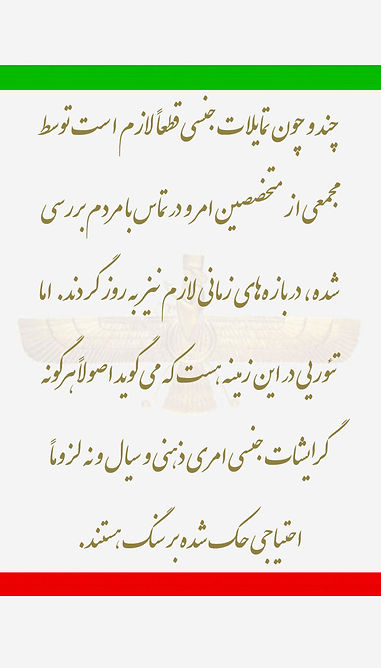 چند و چون تمایلات جنسی قطعاً لازم است توسط
مجمعی از متخصصین امر و در تماس با مردم بررسی
شده، در بازه‌های زمانی لازم نیز به روز گردند. اما
تئوریی در این زمینه هست که می‌گوید اصولاً هرگونه
گرایشات جنسی امری ذهنی و سیال و نه لزوماً
احتیاجی حک شده بر سنگ هستند.